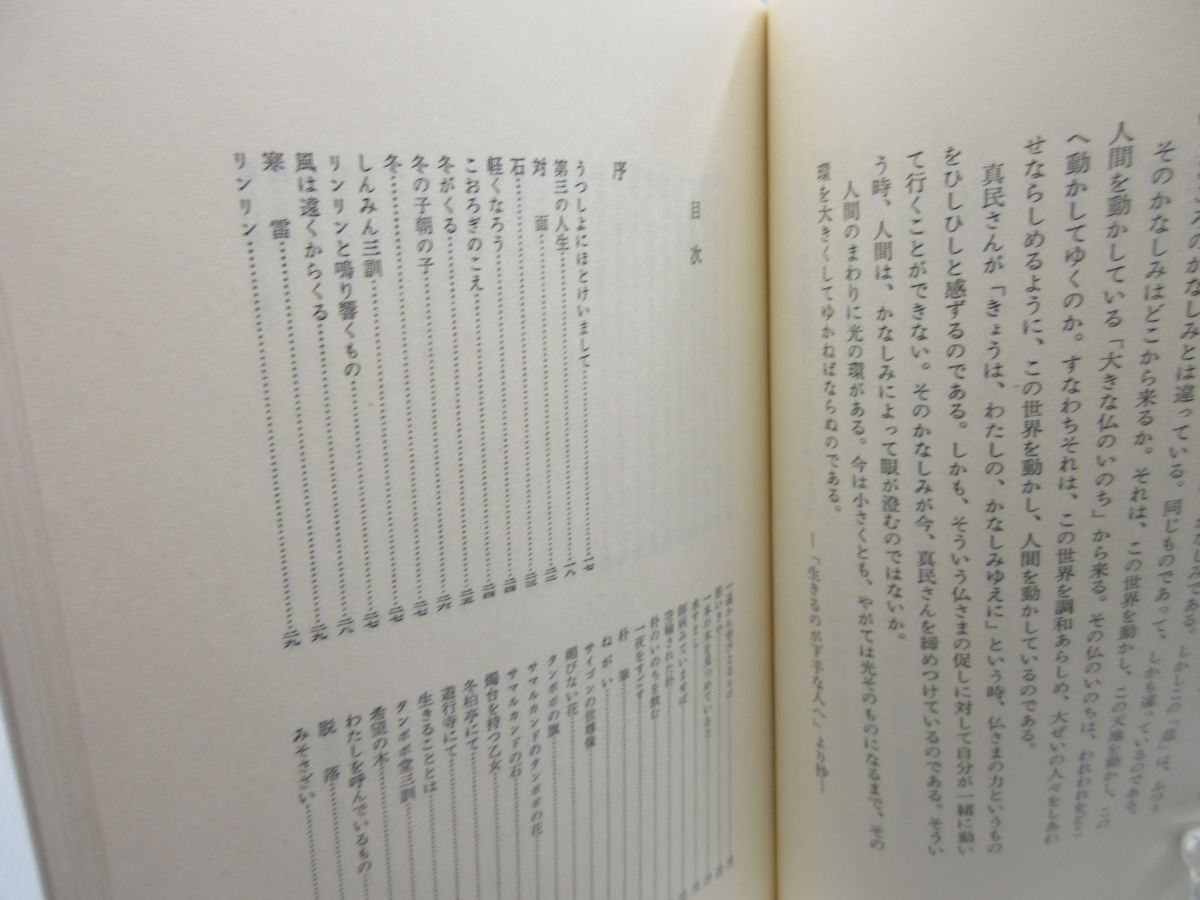 そのかなしみはどこから来るか。それは、この世界を動かし、この天地を動かし、この
人間を動かしている「大きな仏のいのち」から来る。その仏のいのちは、われわれをどこ
へ動かしてゆくのか。すなわちそれは、この世界を調和あらしめ、大ぜいの人々をしあわ
せならしめるように、この世界を動かし、人間を動かしているのである。
真民さんが「きょうは、わたしの、かなしみゆえに」という時、仏さまの力というもの
をひしひしと感ずるのである。しかも、そういう仏さまの促しに対して自分が一緒に動い
て行くことができない。そのかなしみが今、真民さんを締めつけているのである。そうい
う時、人間は、かなしみによって眼が澄むのではないか。
人間のまわりに光の環がある。今は小さくとも、やがては光そのものになるまで、その
環を大きくしてゆかねばならぬのである。
―「生きるのが下手な人へ」より抄―
目次
序
うつしよにほとけいまして……一七
第三の人生……一八
対面……二二
石……二三
軽くなろう……二四
こおろぎのこえ……二五
冬がくる……二六
冬の子朝の子……二七
冬……二七
しんみん三訓……二七
リンリンと鳴り響くもの……二八
風は遠くからくる……二九
寒雷……二九
リンリン……二九
一本の木を見つめていると
朴のいのちを飲む
一夜をすごす
朴筆
ねがい
サイゴンの世尊像
媚びない花
タンポポの旗
サマルカンドのタンポポの花
サマルカンドの石
燭台を持つ乙女
冬柏亭にて
遊行寺にて
生きることとは
タンポポ堂三訓
希望の木
わたしを呼んでいるもの
脱落
みそさざい